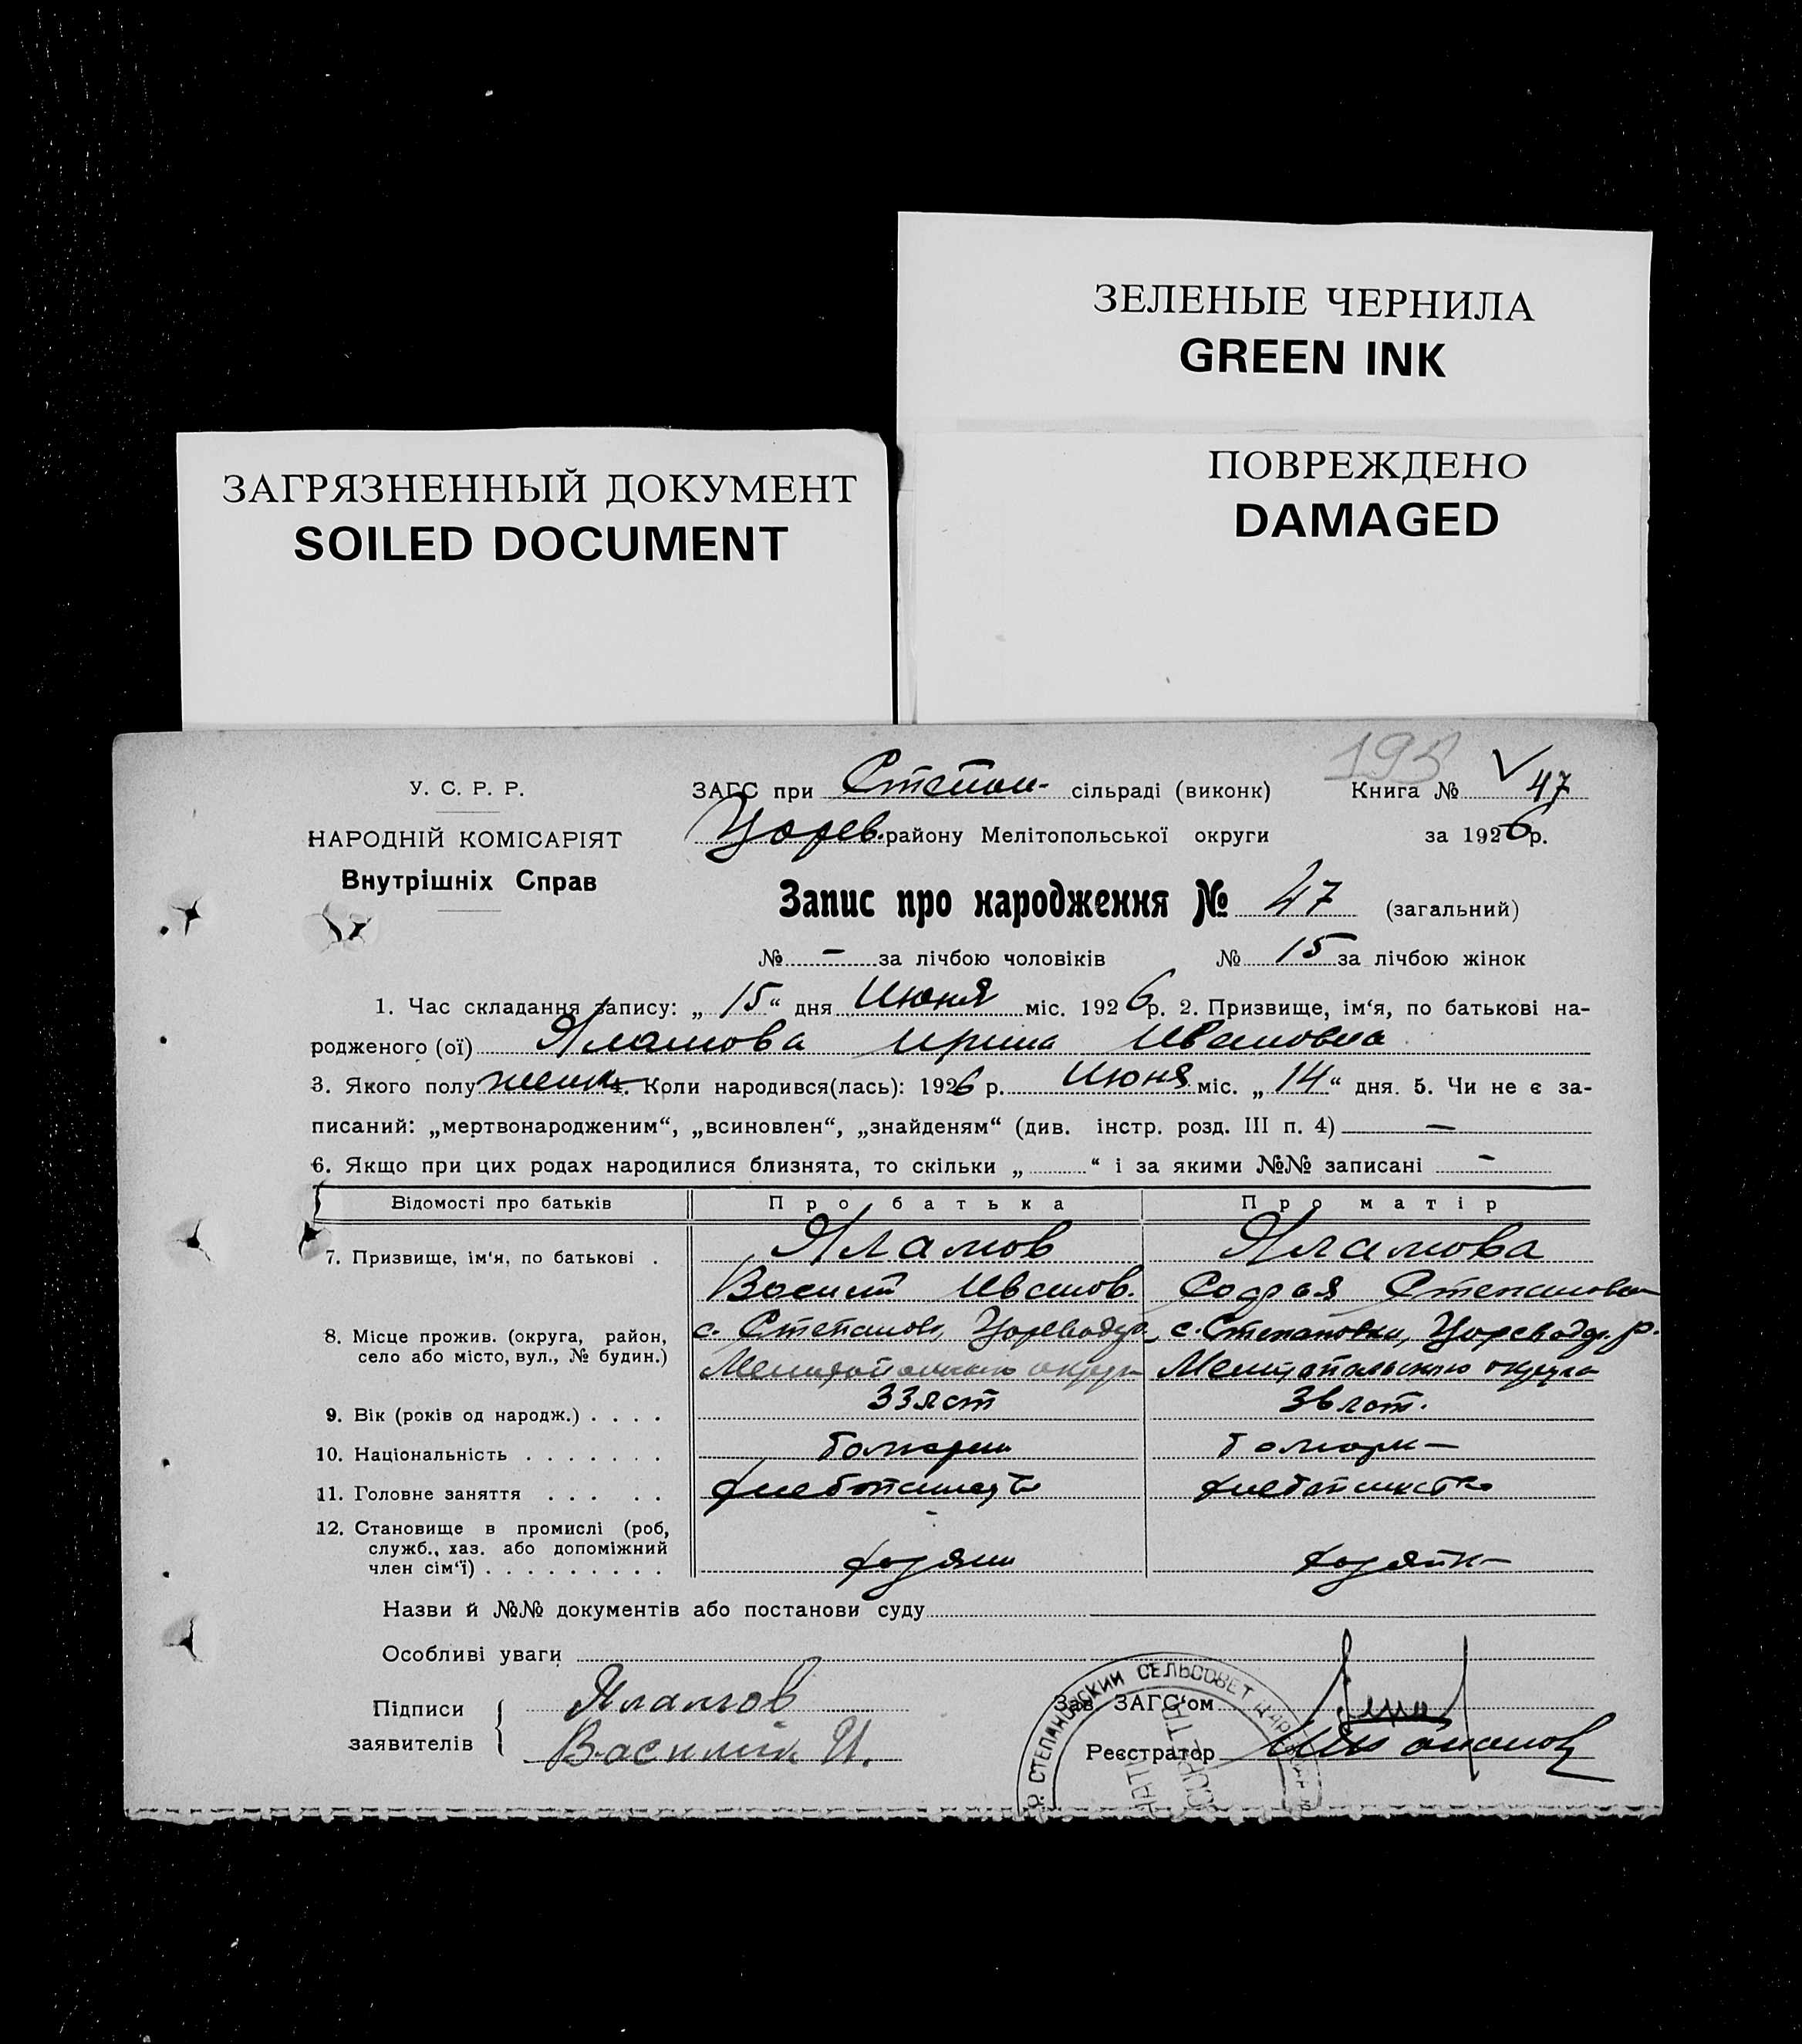 ЗЕЛЕНЫЕ ЧЕРНИЛА
GREEN INK
ПОВРЕЖДЕНО
DAMAGED
ЗАГРЯЗНЕННЫЙ ДОКУМЕНТ
SOILED DOCUMENT
195
У. С. Р. Р.
НАРОДНІЙ КОМІСАРІЯТ
Внутрішніх Справ
ЗАГС при Степан- сільраді (виконк) Книга № 47
Царев. району Мелітопольської округи за 1926 р.
Запис про народження № 47 (загальний)
№ - за лічбою чоловіків № 15 за лічбою жінок
1. Час складання запису: „ 15 “ дня Июня міс. 1926 р. 2. Призвище, ім‘я, по батькові на-
родженого (ої) Яламова Ирина Ивановна
3. Якого полу женск 4. Коли народився(лась): 1926 р. Июня міс. „ 14 “ дня. 5. Чи не є за-
писаний: „мертвонародженим“, „всиновлен“, „знайденям“ (див. інстр. розд. III п. 4) —
6. Якщо при цих родах народилися близнята, то скільки „ “ і за якими №№ записані -
Відомості про батьків Про батька Про матір
7. Призвище, ім‘я, по батькові . Яламов Яламова
Василий Иванов. Софья Степановна
8. Місце прожив. (округа, район, село або місто, вул., № будин.) с. Степанов, Царевод с. Степановки, Царевод. р.
Мелитопольского округа Мелитопольского округа
9. Вік (років од народж.) . . . . 33 лет 36 лет.
10. Національність . . . . . . . болгарин болгарк-
11. Головне заняття . . . . . хлебопашест хлебопашество
12. Становище в промислі (роб,
служб., хаз. або допоміжний
член сім‘ї) . . . . . . . . . хозяин хозяйк-
Назви й №№ документів або постанови суду
Особливі уваги
Підписи заявителів { Яламов
Василий И.
Зав ЗАГС‘ом
Реєстратор
СТЕПАНОВСКИЙ СЕЛЬСОВЕТ